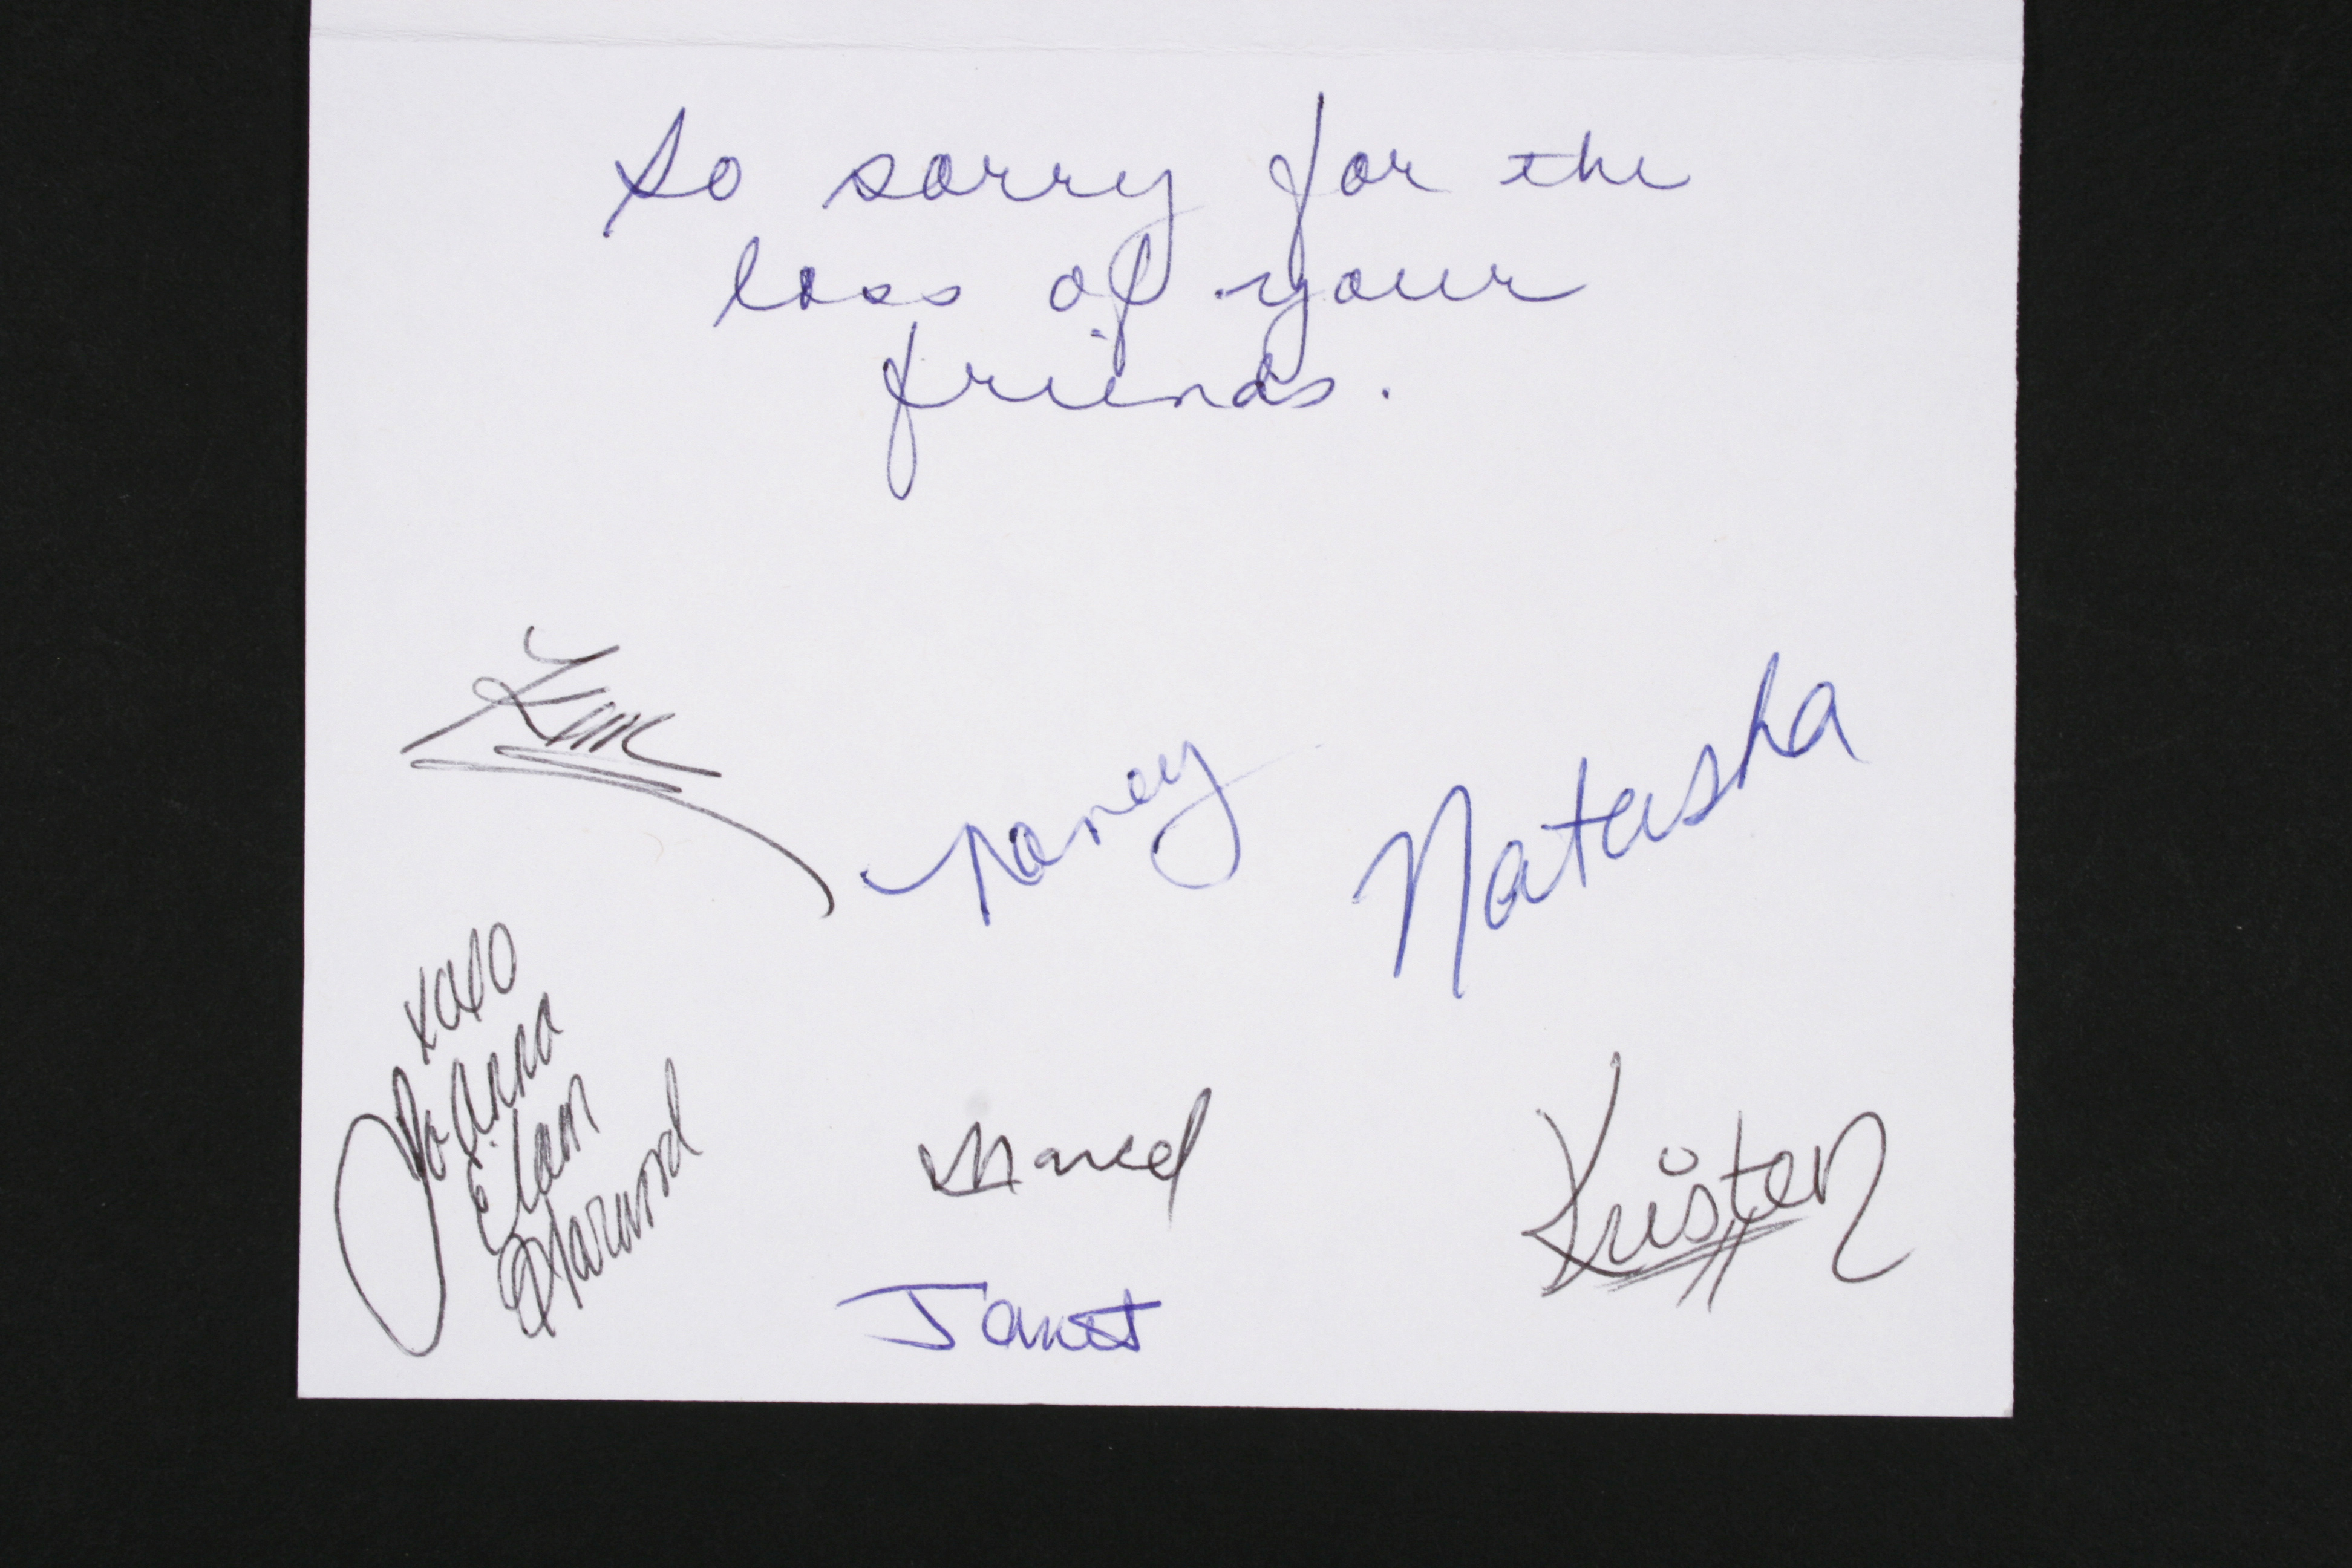 So sorry for the
loss of your
friends.
Kim
Nancy
Natasha
xoxo
Joanna
Elam
Harwood
Marcel
Kristen
Janet